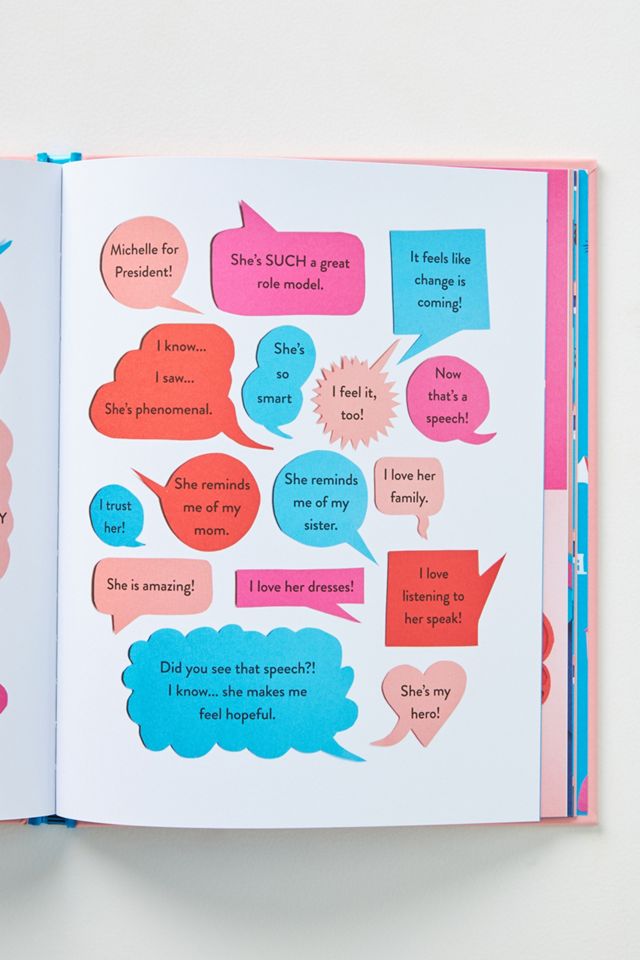 Michelle for
President!
She's SUCH a great
role model.
It feels like
change is
coming!
I know...
I saw...
She's phenomenal.
She's
so
smart
I feel it,
too!
Now
that's a
speech!
I trust
her!
She reminds
me of my
mom.
She reminds
me of my
sister.
I love her
family.
She is amazing!
I love her dresses!
I love
listening to
her speak!
Did you see that speech?!
I know... she makes me
feel hopeful.
She's my
hero!